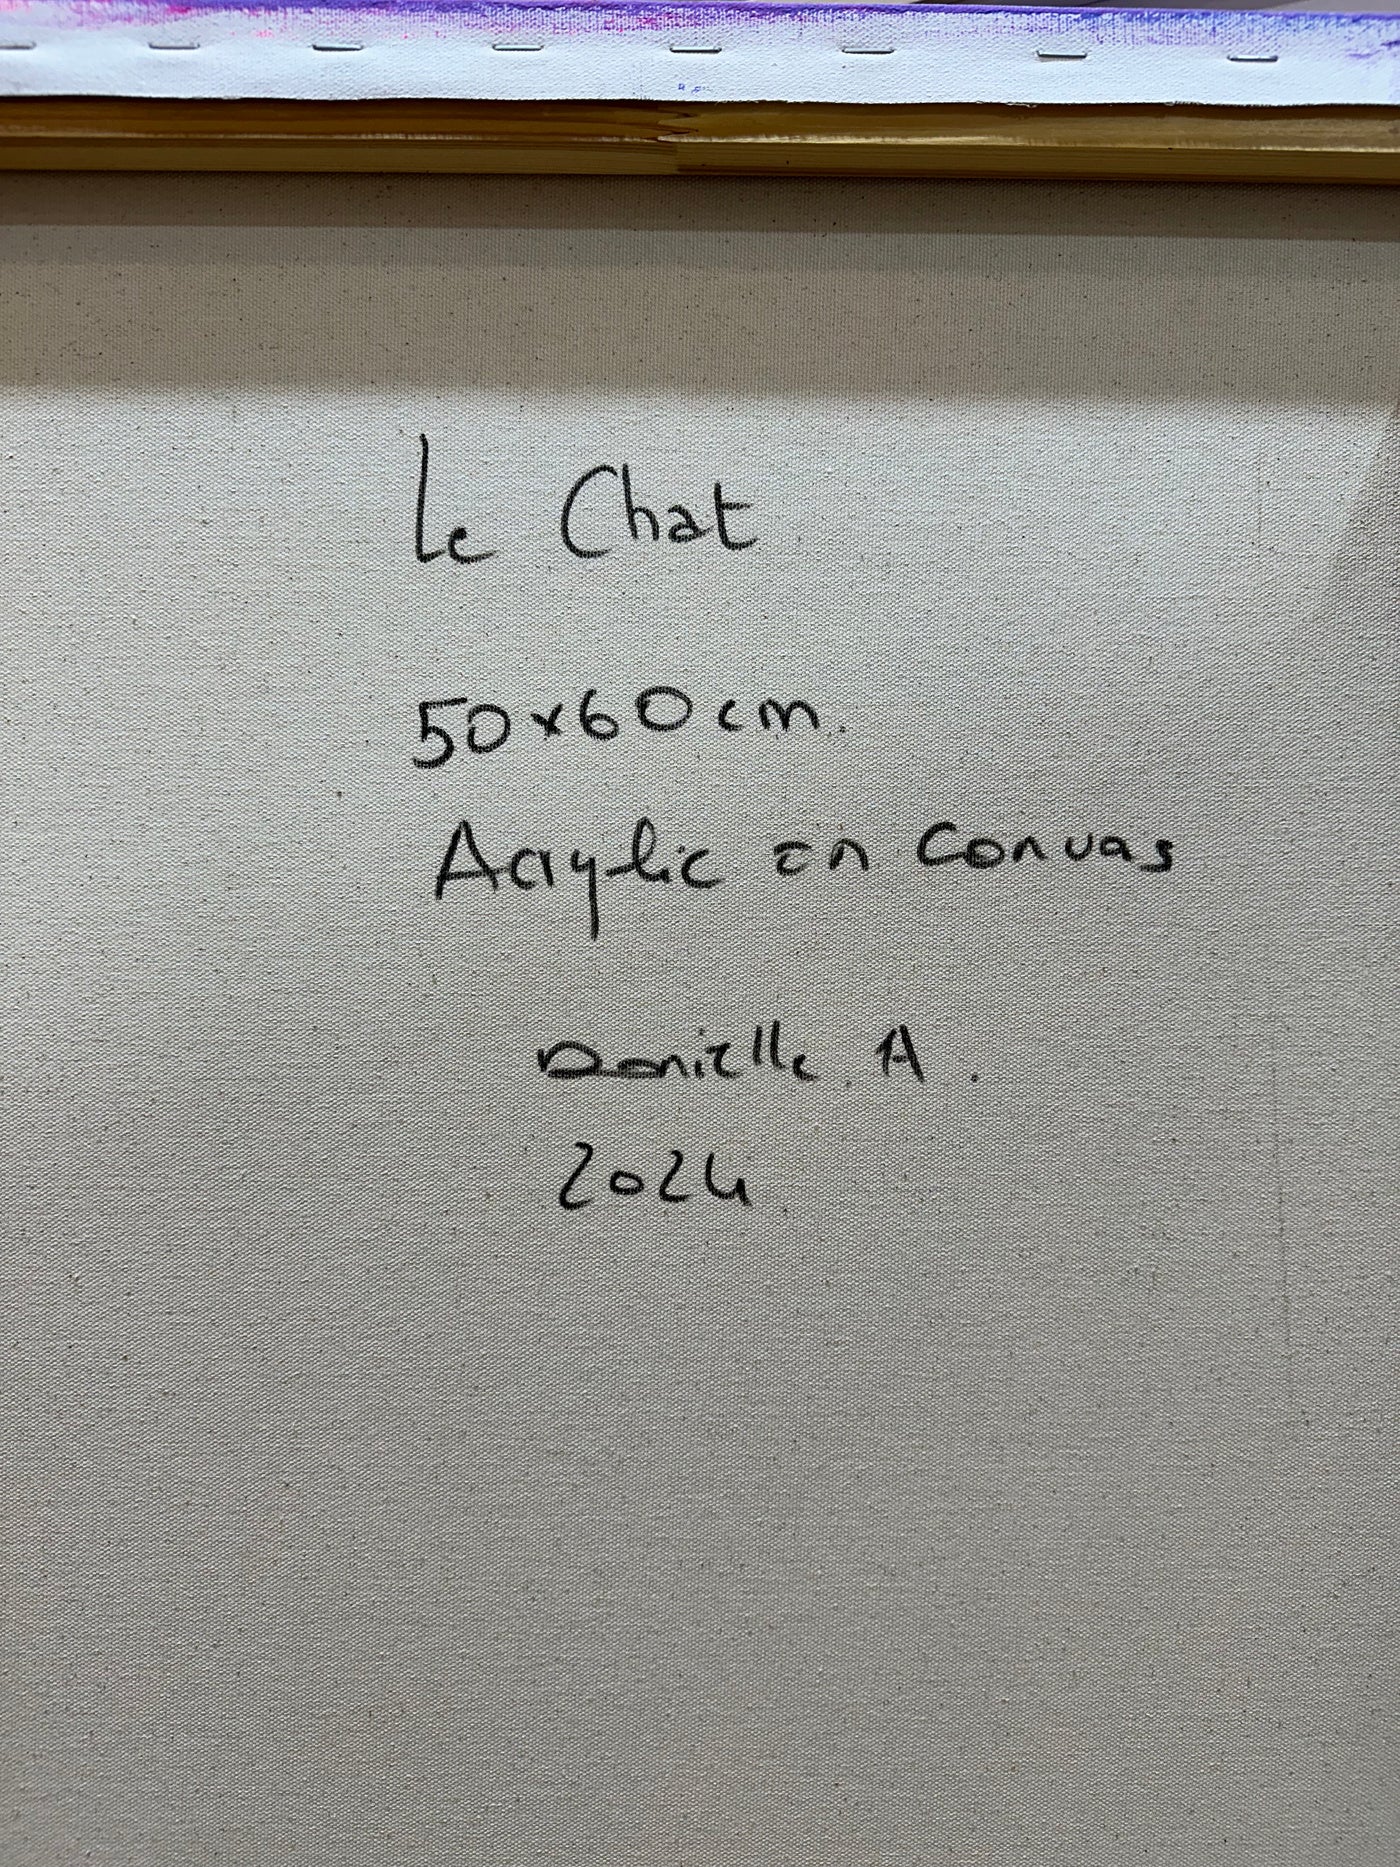 Le Chat
50x60cm.
Acrylic on Canvas
Danielle. A.
2024